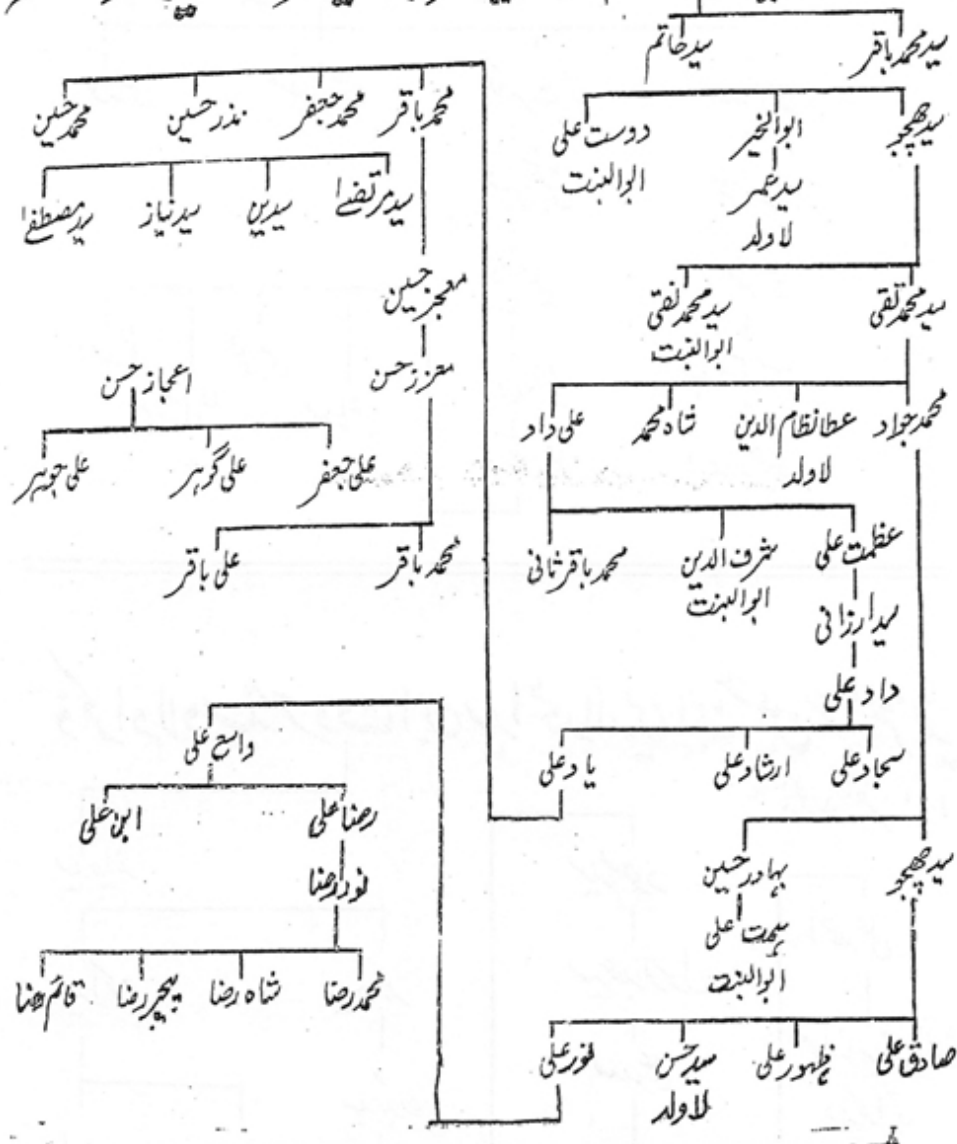 سید محمد باقر
سید حاتم
سید چھجو
ابوالخیر
سید عمر
لاولد
دوست علی
ابوالبنت
سید محمد تقی
سید محمد نقی
ابوالبنت
محمد جواد
عطا نظام الدین
لاولد
شاہ محمد
علی داد
عظمت علی
شرف الدین
ابوالبنت
محمد باقر ثانی
سید ارزانی
داد علی
سجاد علی
ارشاد علی
یاد علی
سید چھجو
بہادر حسین
ہمت علی
ابوالبنت
صادق علی
ظہور علی
سید حسن
لاولد
نور علی
محمد باقر
محمد جعفر
نذر حسین
محمد حسین
سید مرتضےٰ
سیدین
سید نیاز
سید مصطفےٰ
معجز حسین
معزز حسن
اعجاز حسن
علی جعفر
علی گوہر
علی جوہر
محمد باقر
علی باقر
واسع علی
رضا علی
ابن علی
نور رضا
محمد رضا
شاہ رضا
قائم رضا